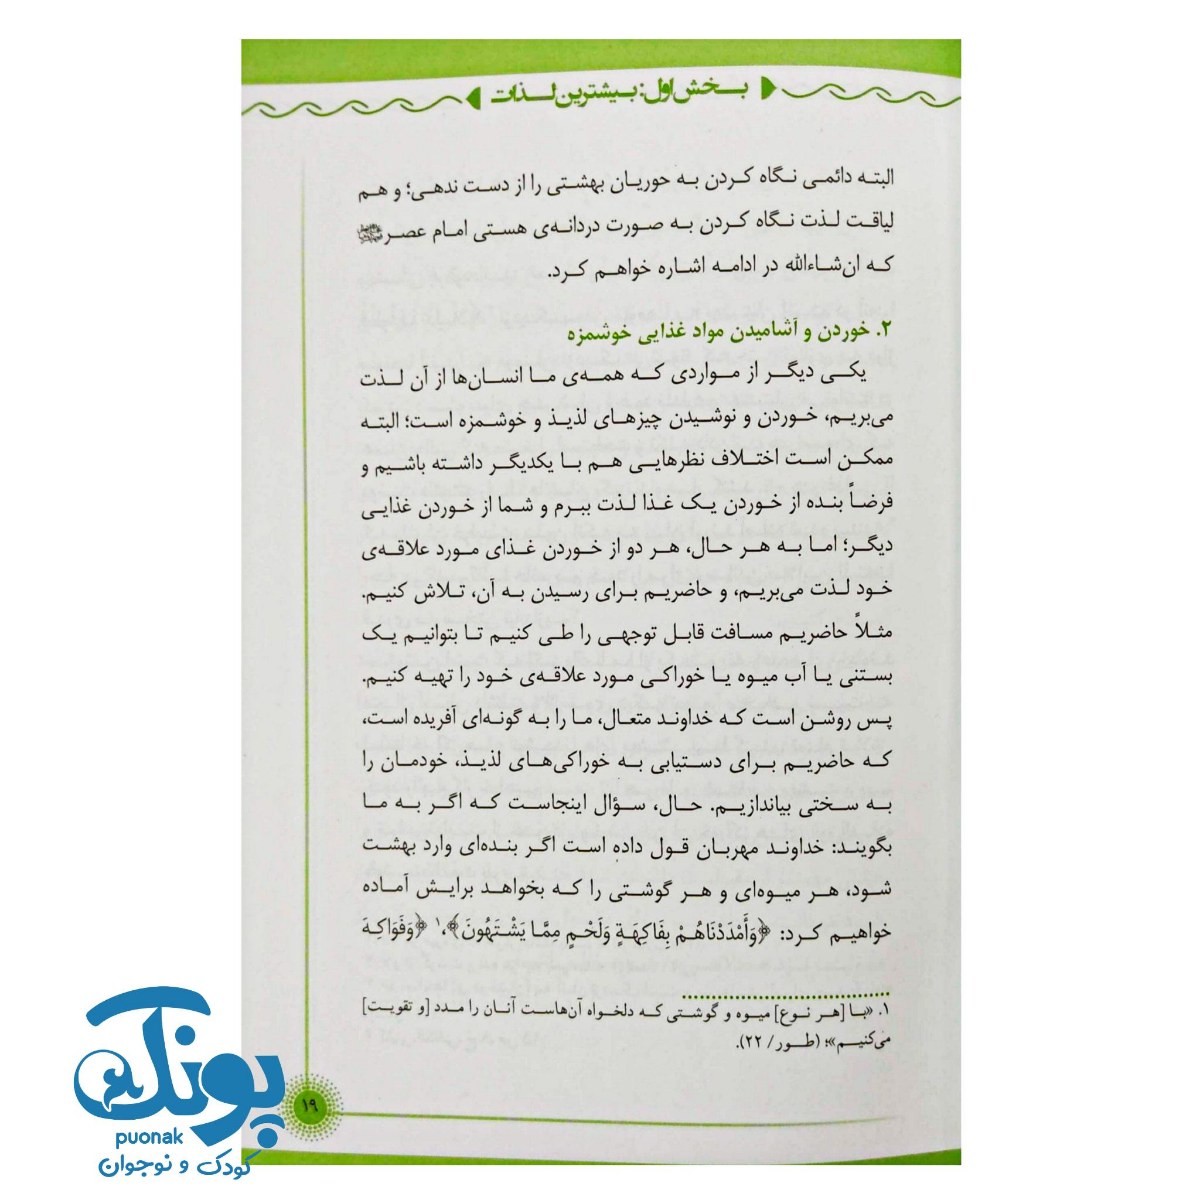 بخش اول: بیشترین لذات
البته دائمی نگاه کردن به حوریان بهشتی را از دست ندهی؛ و هم
لیاقت لذت نگاه کردن به صورت دردانه‌ی هستی امام عصر
که ان‌شاءالله در ادامه اشاره خواهم کرد.
۲. خوردن و آشامیدن مواد غذایی خوشمزه
یکی دیگر از مواردی که همه‌ی ما انسان‌ها از آن لذت
می‌بریم، خوردن و نوشیدن چیزهای لذیذ و خوشمزه است؛ البته
ممکن است اختلاف نظرهایی هم با یکدیگر داشته باشیم و
فرضاً بنده از خوردن یک غذا لذت ببرم و شما از خوردن غذایی
دیگر؛ اما به هر حال، هر دو از خوردن غذای مورد علاقه‌ی
خود لذت می‌بریم، و حاضریم برای رسیدن به آن، تلاش کنیم.
مثلاً حاضریم مسافت قابل توجهی را طی کنیم تا بتوانیم یک
بستنی یا آب میوه یا خوراکی مورد علاقه‌ی خود را تهیه کنیم.
پس روشن است که خداوند متعال، ما را به گونه‌ای آفریده است،
که حاضریم برای دستیابی به خوراکی‌های لذیذ، خودمان را
به سختی بیاندازیم. حال، سؤال اینجاست که اگر به ما
بگویند: خداوند مهربان قول داده است اگر بنده‌ای وارد بهشت
شود، هر میوه‌ای و هر گوشتی را که بخواهد برایش آماده
خواهیم کرد: ﴿وَأَمْدَدْنَاهُمْ بِفَاكِهَةٍ وَلَحْمٍ مِمَّا يَشْتَهُونَ﴾،۱ ﴿وَفَوَاكِهَ
۱. «با [هر نوع] میوه و گوشتی که دلخواه آن‌هاست آنان را مدد [و تقویت]
می‌کنیم»؛ (طور/ ۲۲).
۱۹
پونک
puonak
کودک و نوجوان